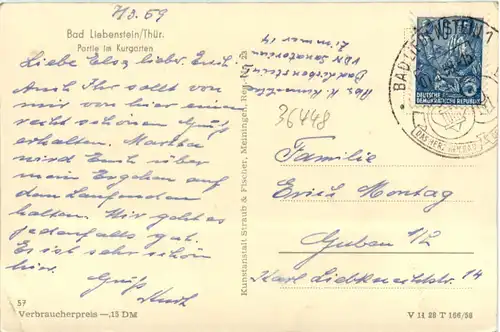 7/3.59
Bad Liebenstein/Thür.
Partie im Kurgarten
Liebe Else, lieber Erich!
Auch Ihr sollt von
mir von hier einen
recht schönen Gruß
erhalten. Martha
wird Euch über
mein Ergehen auf
dem Laufenden
halten. Mir geht es
jedenfalls gut.
Es ist sehr schön
hier.
Gruß
Kurt
57
Verbraucherpreis —,15 DM
Kunstanstalt Straub & Fischer, Meiningen, Reg.-Nr. 23
Abs. K.
Bad Liebenstein
VDN Sanatorium
Zimmer 14
36448
BAD LIEBENSTEIN 1
DEUTSCHE
DEMOKRATISCHE REPUBLIK
Familie
Erich Montag
Guben 1/2
Karl Liebknechtstr. 14
V 11 28 T 166/58